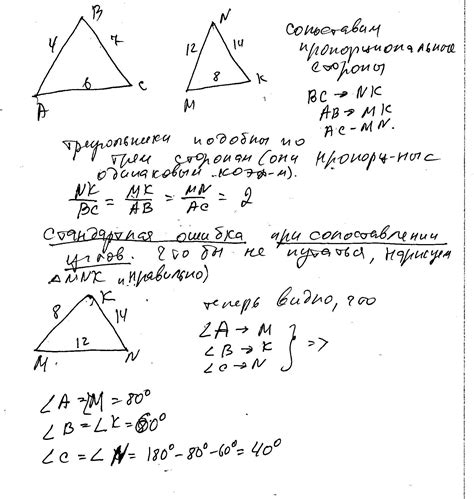 B
4
7
6
A
C
N
12
14
8
M
K
сопоставим
пропорциональные
стороны
BC → NK
AB → MK
AC – MN.
Треугольники подобны по
трем сторонам (они пропорц-ны с
одинаковый коэф-м).
NK/BC = MK/AB = MN/AC = 2
Стандартная ошибка при сопоставлении
углов. Что бы не путаться, нарисуем
△MNK правильно)
K
8
14
12
M
N
теперь видно, что
∠A → M
∠B → K
∠C → N
} =>
∠A = ∠M = 80°
∠B = ∠K = 60°
∠C = ∠N = 180° – 80° – 60° = 40°